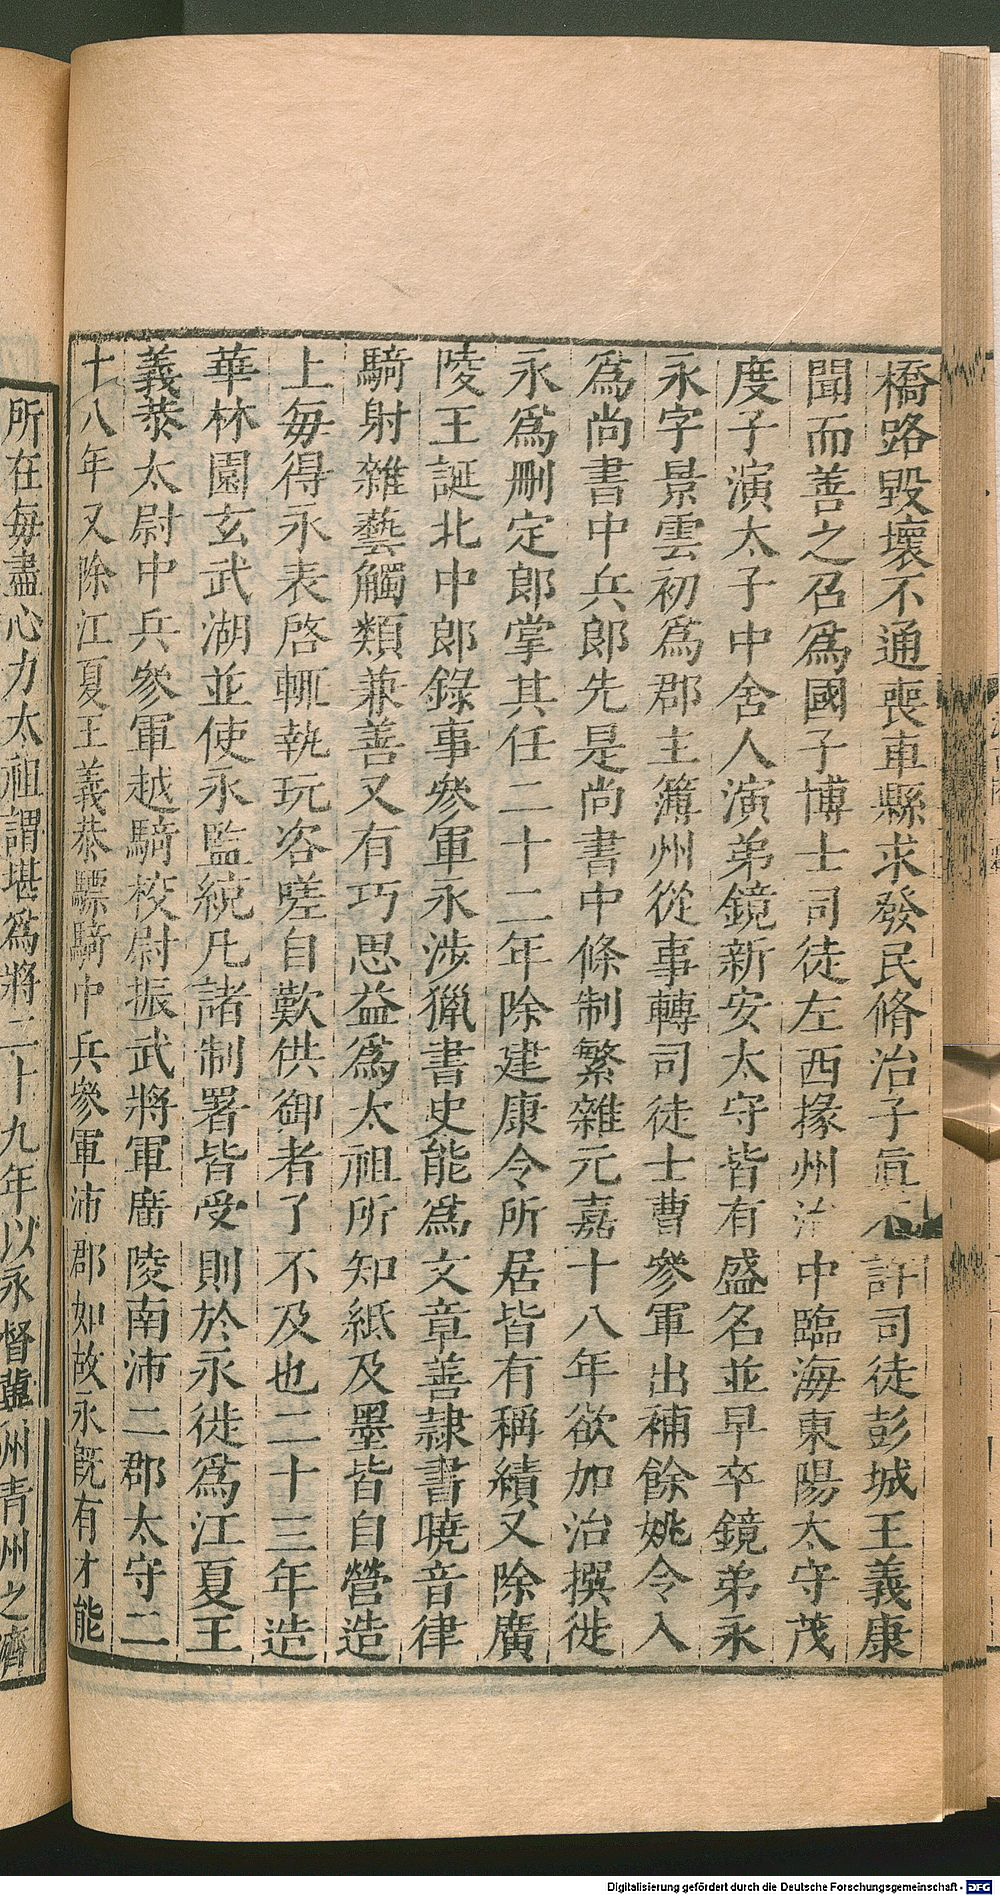 橋路毀壞不通喪車縣求發民脩治子眞不許司徒彭城王義康
聞而善之召爲國子博士司徒左西掾州治中臨海東陽太守茂
度子演太子中舍人演弟鏡新安太守皆有盛名並早卒鏡弟永
永字景雲初爲郡主簿州從事轉司徒士曹參軍出補餘姚令入
爲尚書中兵郎先是尚書中條制繁雜元嘉十八年欲加治撰徙
永爲刪定郎掌其任二十二年除建康令所居皆有稱績又除廣
陵王誕北中郎錄事參軍永涉獵書史能爲文章善隷書曉音律
騎射雜藝觸類兼善又有巧思益爲太祖所知紙及墨皆自營造
上每得永表啓輒執玩咨嗟自歎供御者了不及也二十三年造
華林園玄武湖並使永監統凡諸制署皆受則於永徙爲江夏王
義恭太尉中兵參軍越騎校尉振武將軍廣陵南沛二郡太守二
十八年又除江夏王義恭驃騎中兵參軍沛郡如故永旣有才能
所在每盡心力太祖謂堪爲將二十九年以永督冀州青州之濟
Digitalisierung gefördert durch die Deutsche Forschungsgemeinschaft - DFG